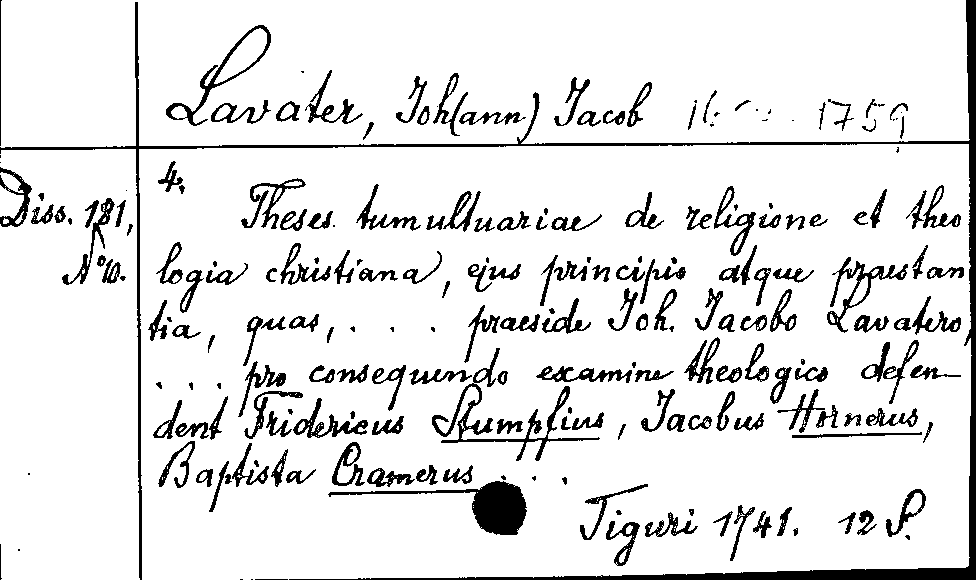 Lavater, Joh(ann) Jacob 16 . 1759
4.
Diss. 181,
No 10.
Theses tumultuariae de religione et theo
logia christiana, ejus principio atque praestan
tia, quas, . . . praeside Joh. Jacobo Lavatero,
. . . pro consequendo examine theologico defen-
dent Fridericus Stumpfius, Jacobus Hornerus,
Baptista Cramerus . . .
Tiguri 1741. 12 S.